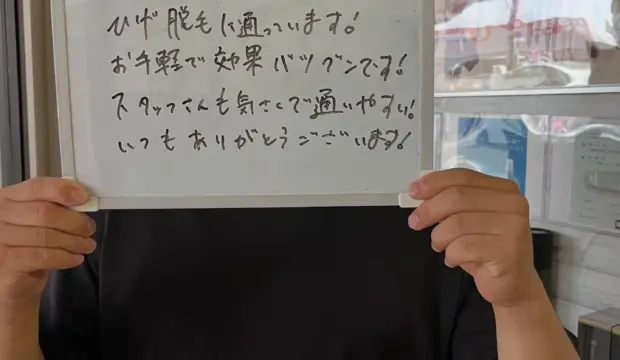 ひげ脱毛に通っています!
お手軽で効果バツグンです!
スタッフさんも気さくで通いやすい!
いつもありがとうございます!